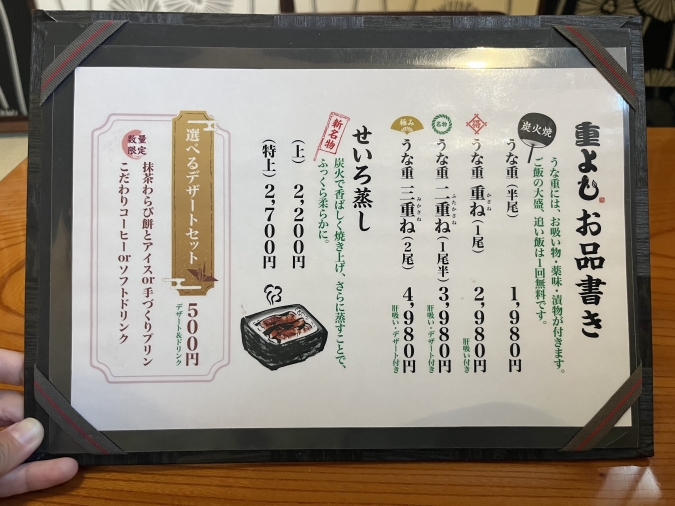 重よし お品書き
うな重には、お吸い物・薬味・漬物が付きます。
ご飯の大盛、追い飯は1回無料です。
炭火焼
うな重(半尾) 1,980円
うな重 重ね(1尾) 2,980円
かさね
肝吸い付き
名物
うな重 二重ね(1尾半) 3,980円
ふたかさね
肝吸い・デザート付き
極み
うな重 三重ね(2尾) 4,980円
みかさね
肝吸い・デザート付き
せいろ蒸し
新名物
炭火で香ばしく焼き上げ、さらに蒸すことで、
ふっくら柔らかに。
(上) 2,200円
(特上) 2,700円
選べるデザートセット
500円
デザート&ドリンク
数量
限定
抹茶わらび餅とアイスor手づくりプリン
こだわりコーヒーorソフトドリンク